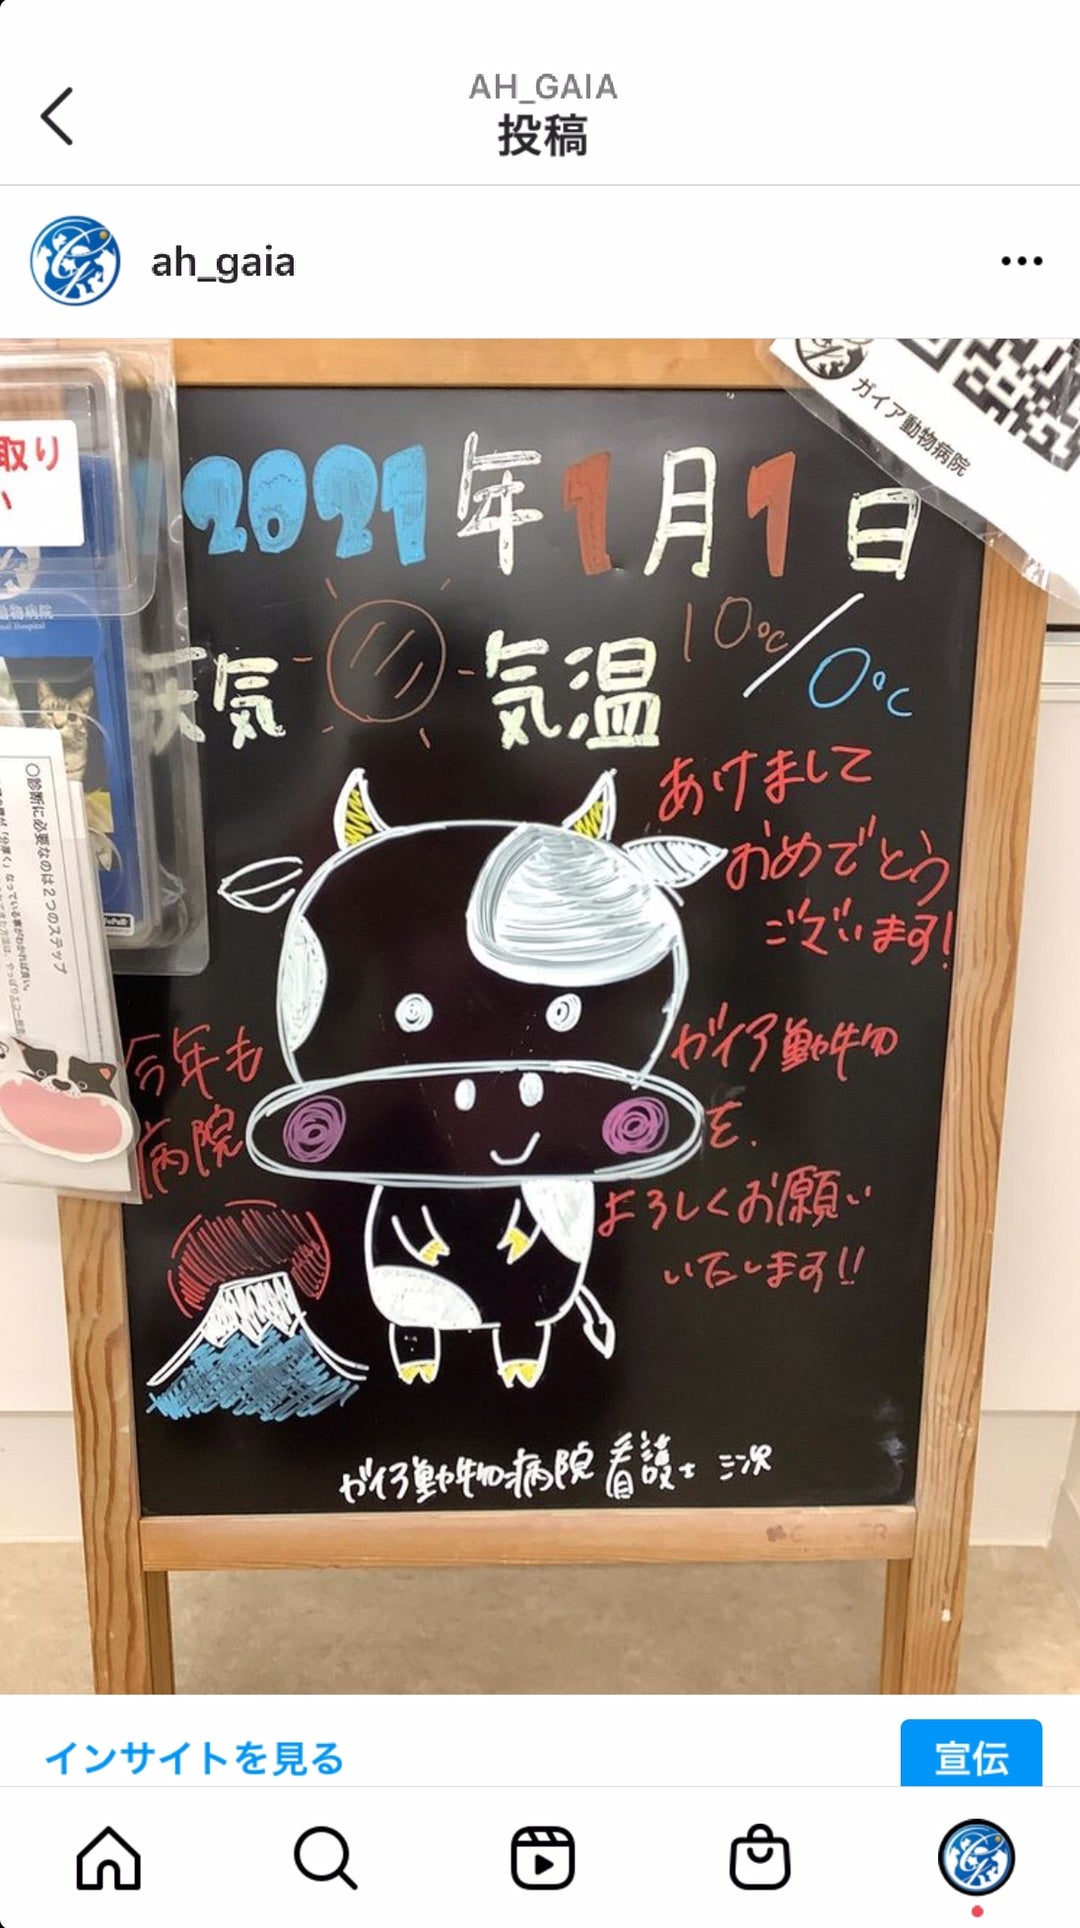 AH_GAIA
投稿
ah_gaia
取り
い
ガイア動物病院
2021年1月1日
天気 気温 10℃/0℃
あけまして
おめでとう
ございます!
今年も ガイア動物
病院 を.
よろしくお願い
いたします!!
〇診断に必要なのは2つのステップ
ガイア動物病院 看護士 三次
インサイトを見る
宣伝